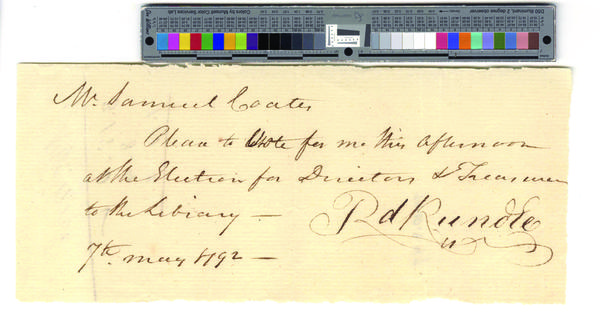 Mr Samuel Coates
Please to Vote for me this afternoon
at the Election for Directors & Treasurer
to the Library —
Rd Rundle
7th may 1792 —